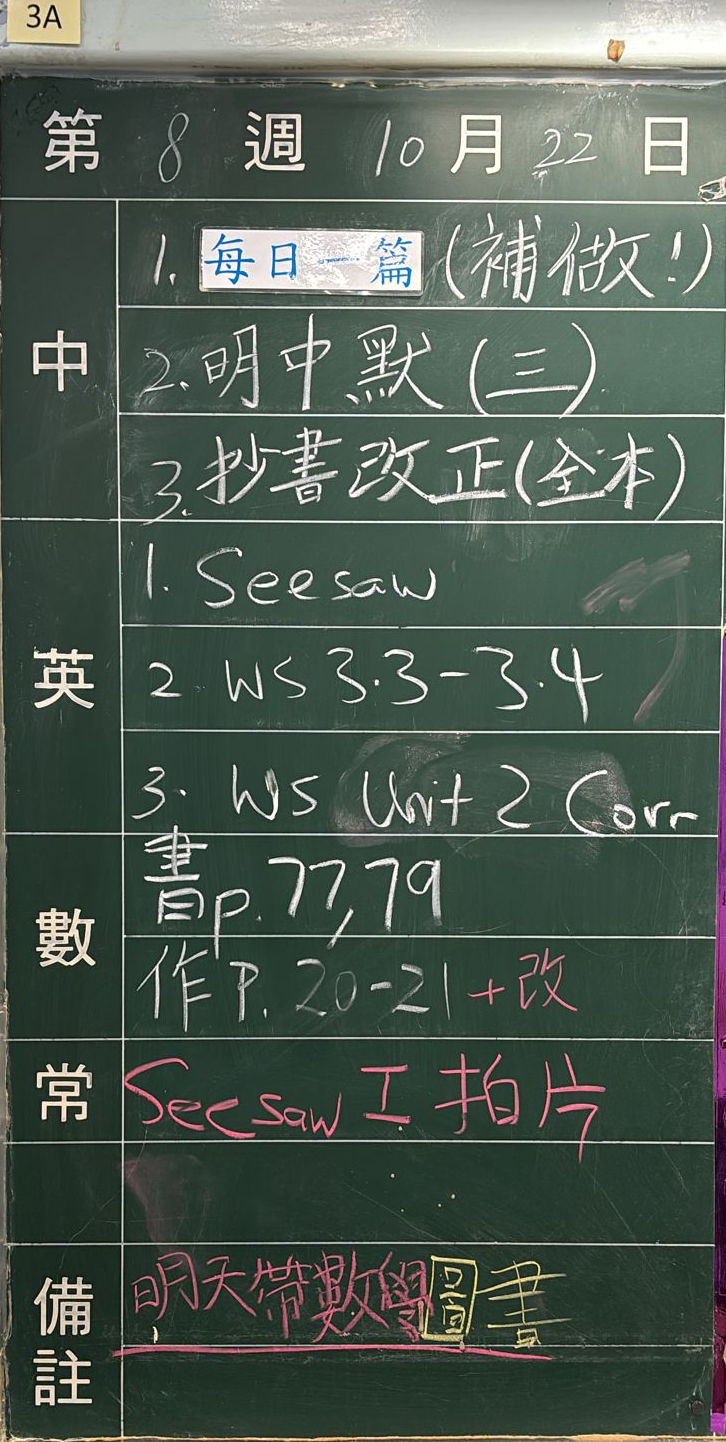 3A
第 8 週 10 月 22 日
中
1. 每日一篇 (補做!)
2. 明中默 (三)
3. 抄書改正 (全本)
英
1. Seesaw
2. WS 3.3-3.4
3. WS Unit 2 Corr
數
書p. 77, 79
作P. 20-21 + 改
常
Seesaw 工 拍片
備註
明天帶數學圖書